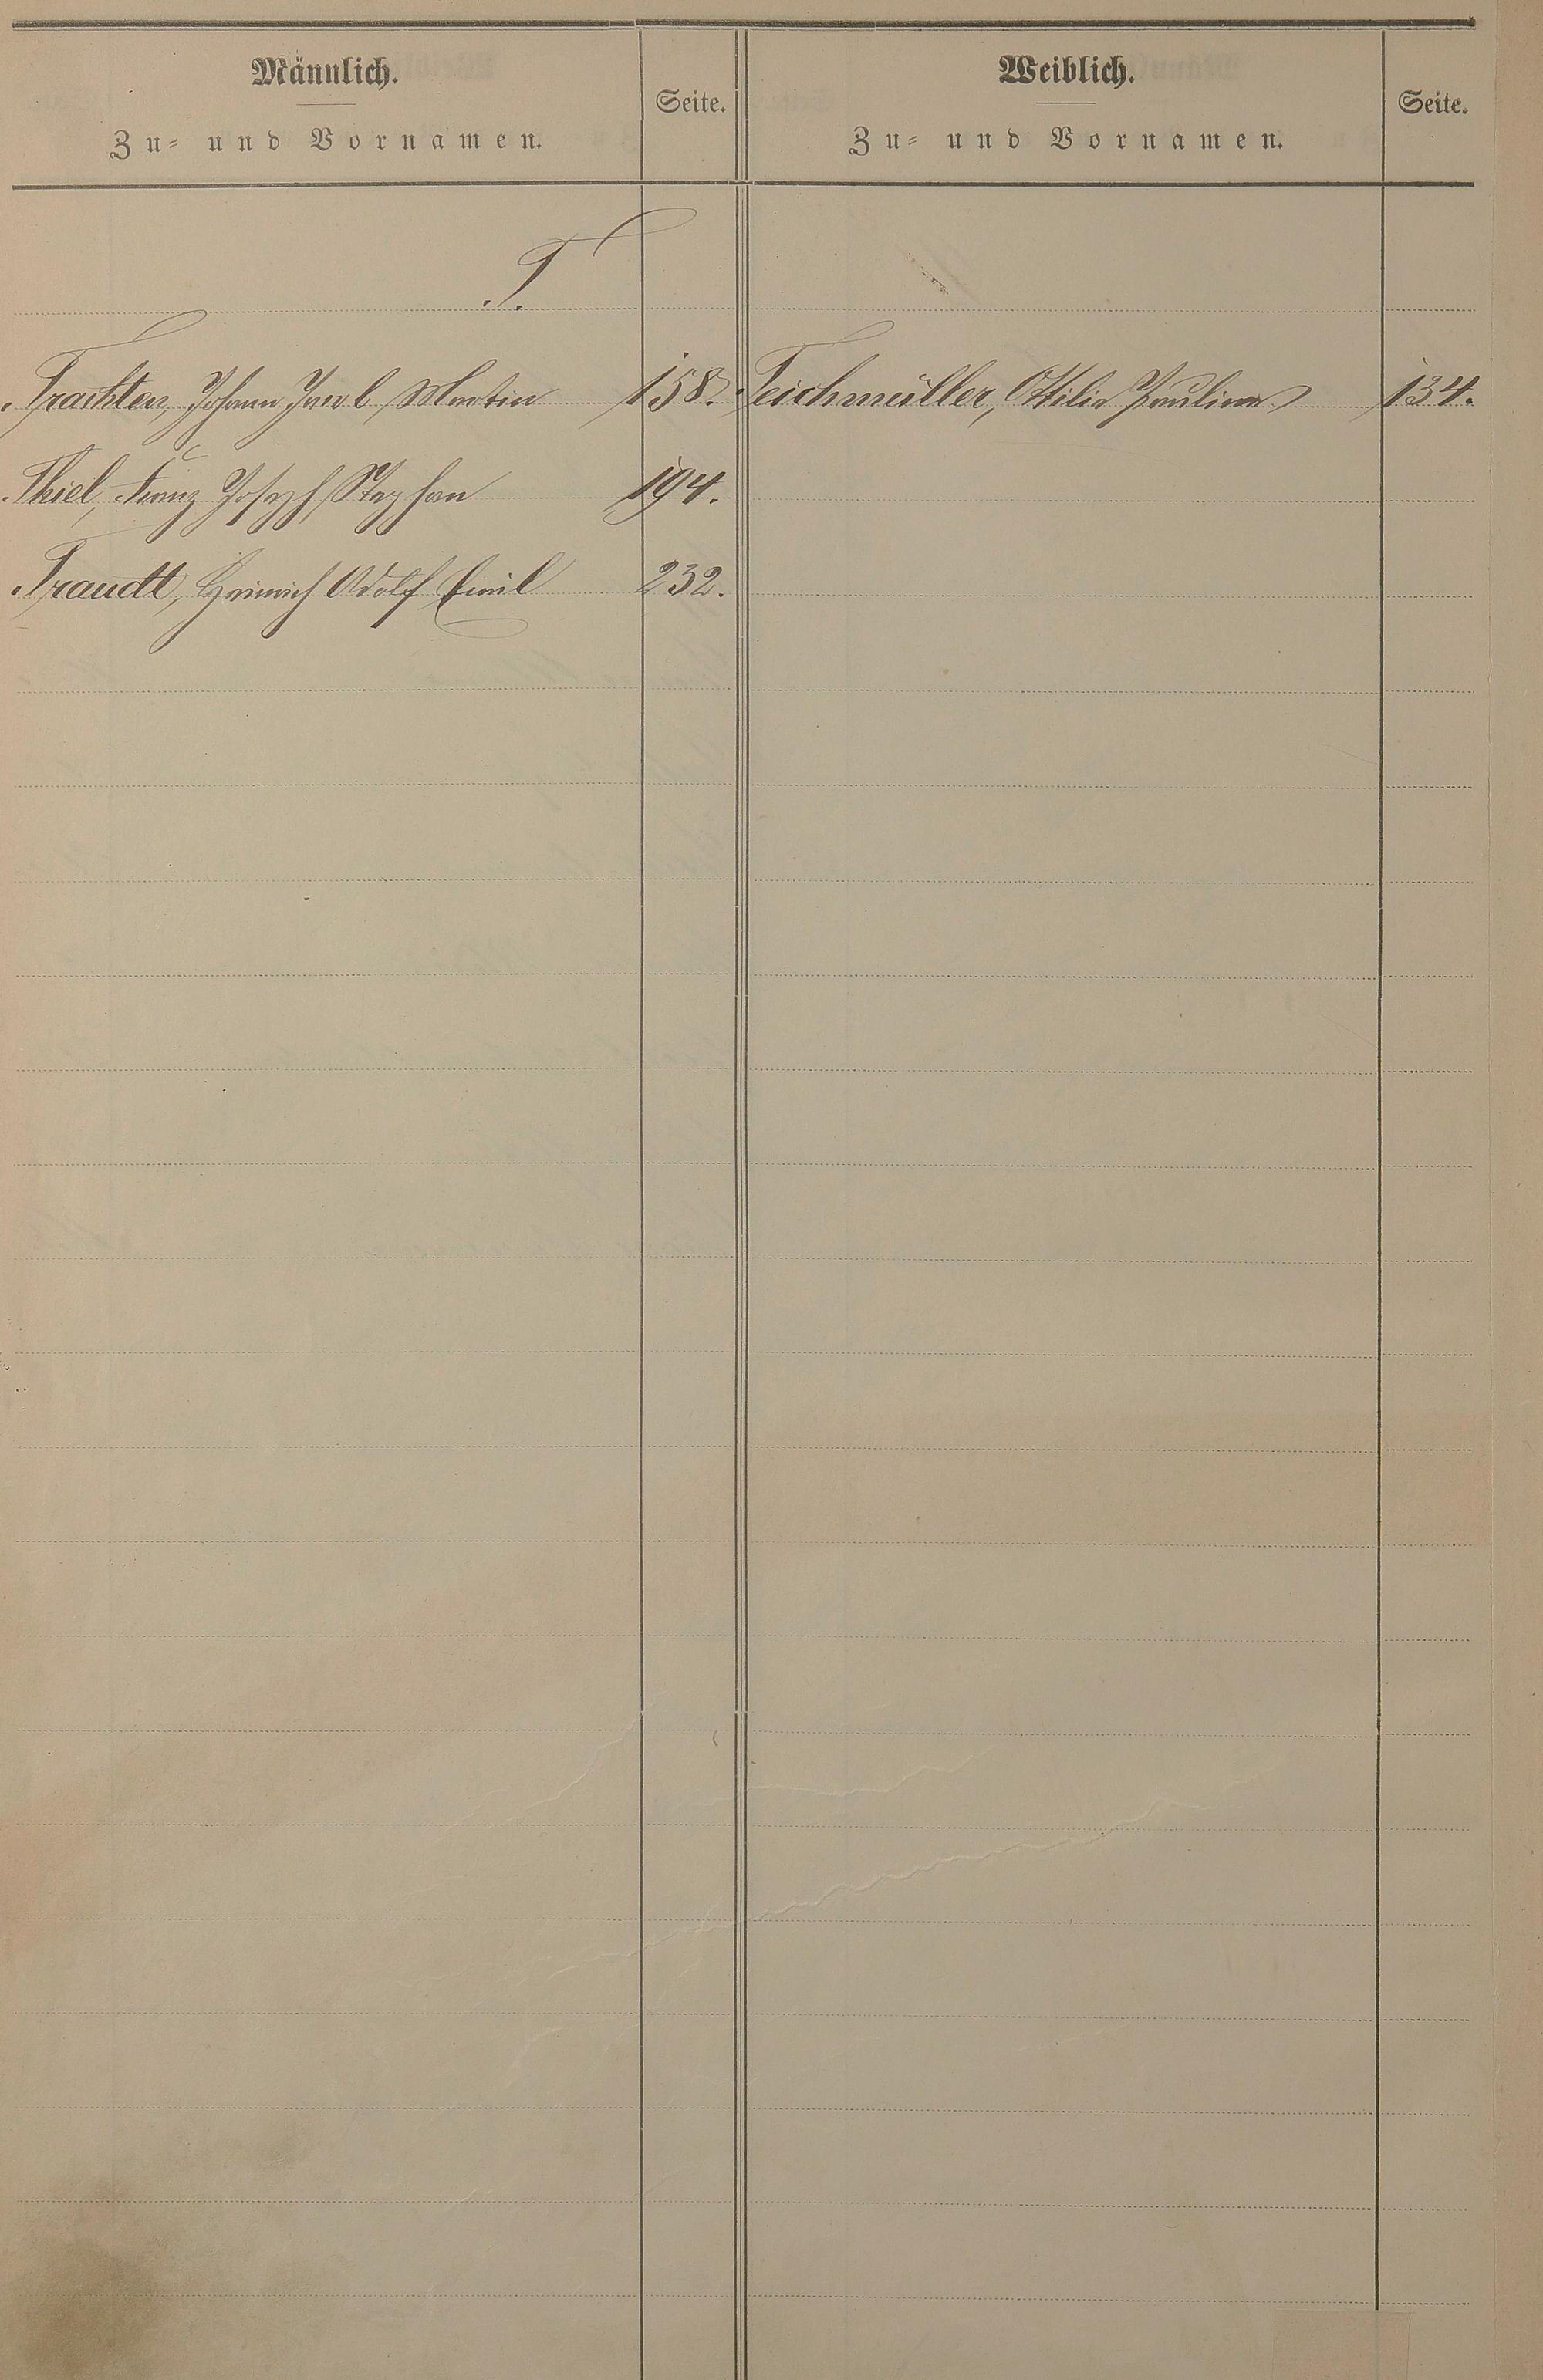 Männlich.
Zu- und Vornamen.
Seite.
Weiblich.
Zu- und Vornamen.
Seite.
T.
Trachten, Johann Jacob Martin 158. Teichmüller, Ottilie Pauline 134.
Thiel, Franz Joseph Stephan 194.
Traudt, Heinrich Adolf Emil 232.